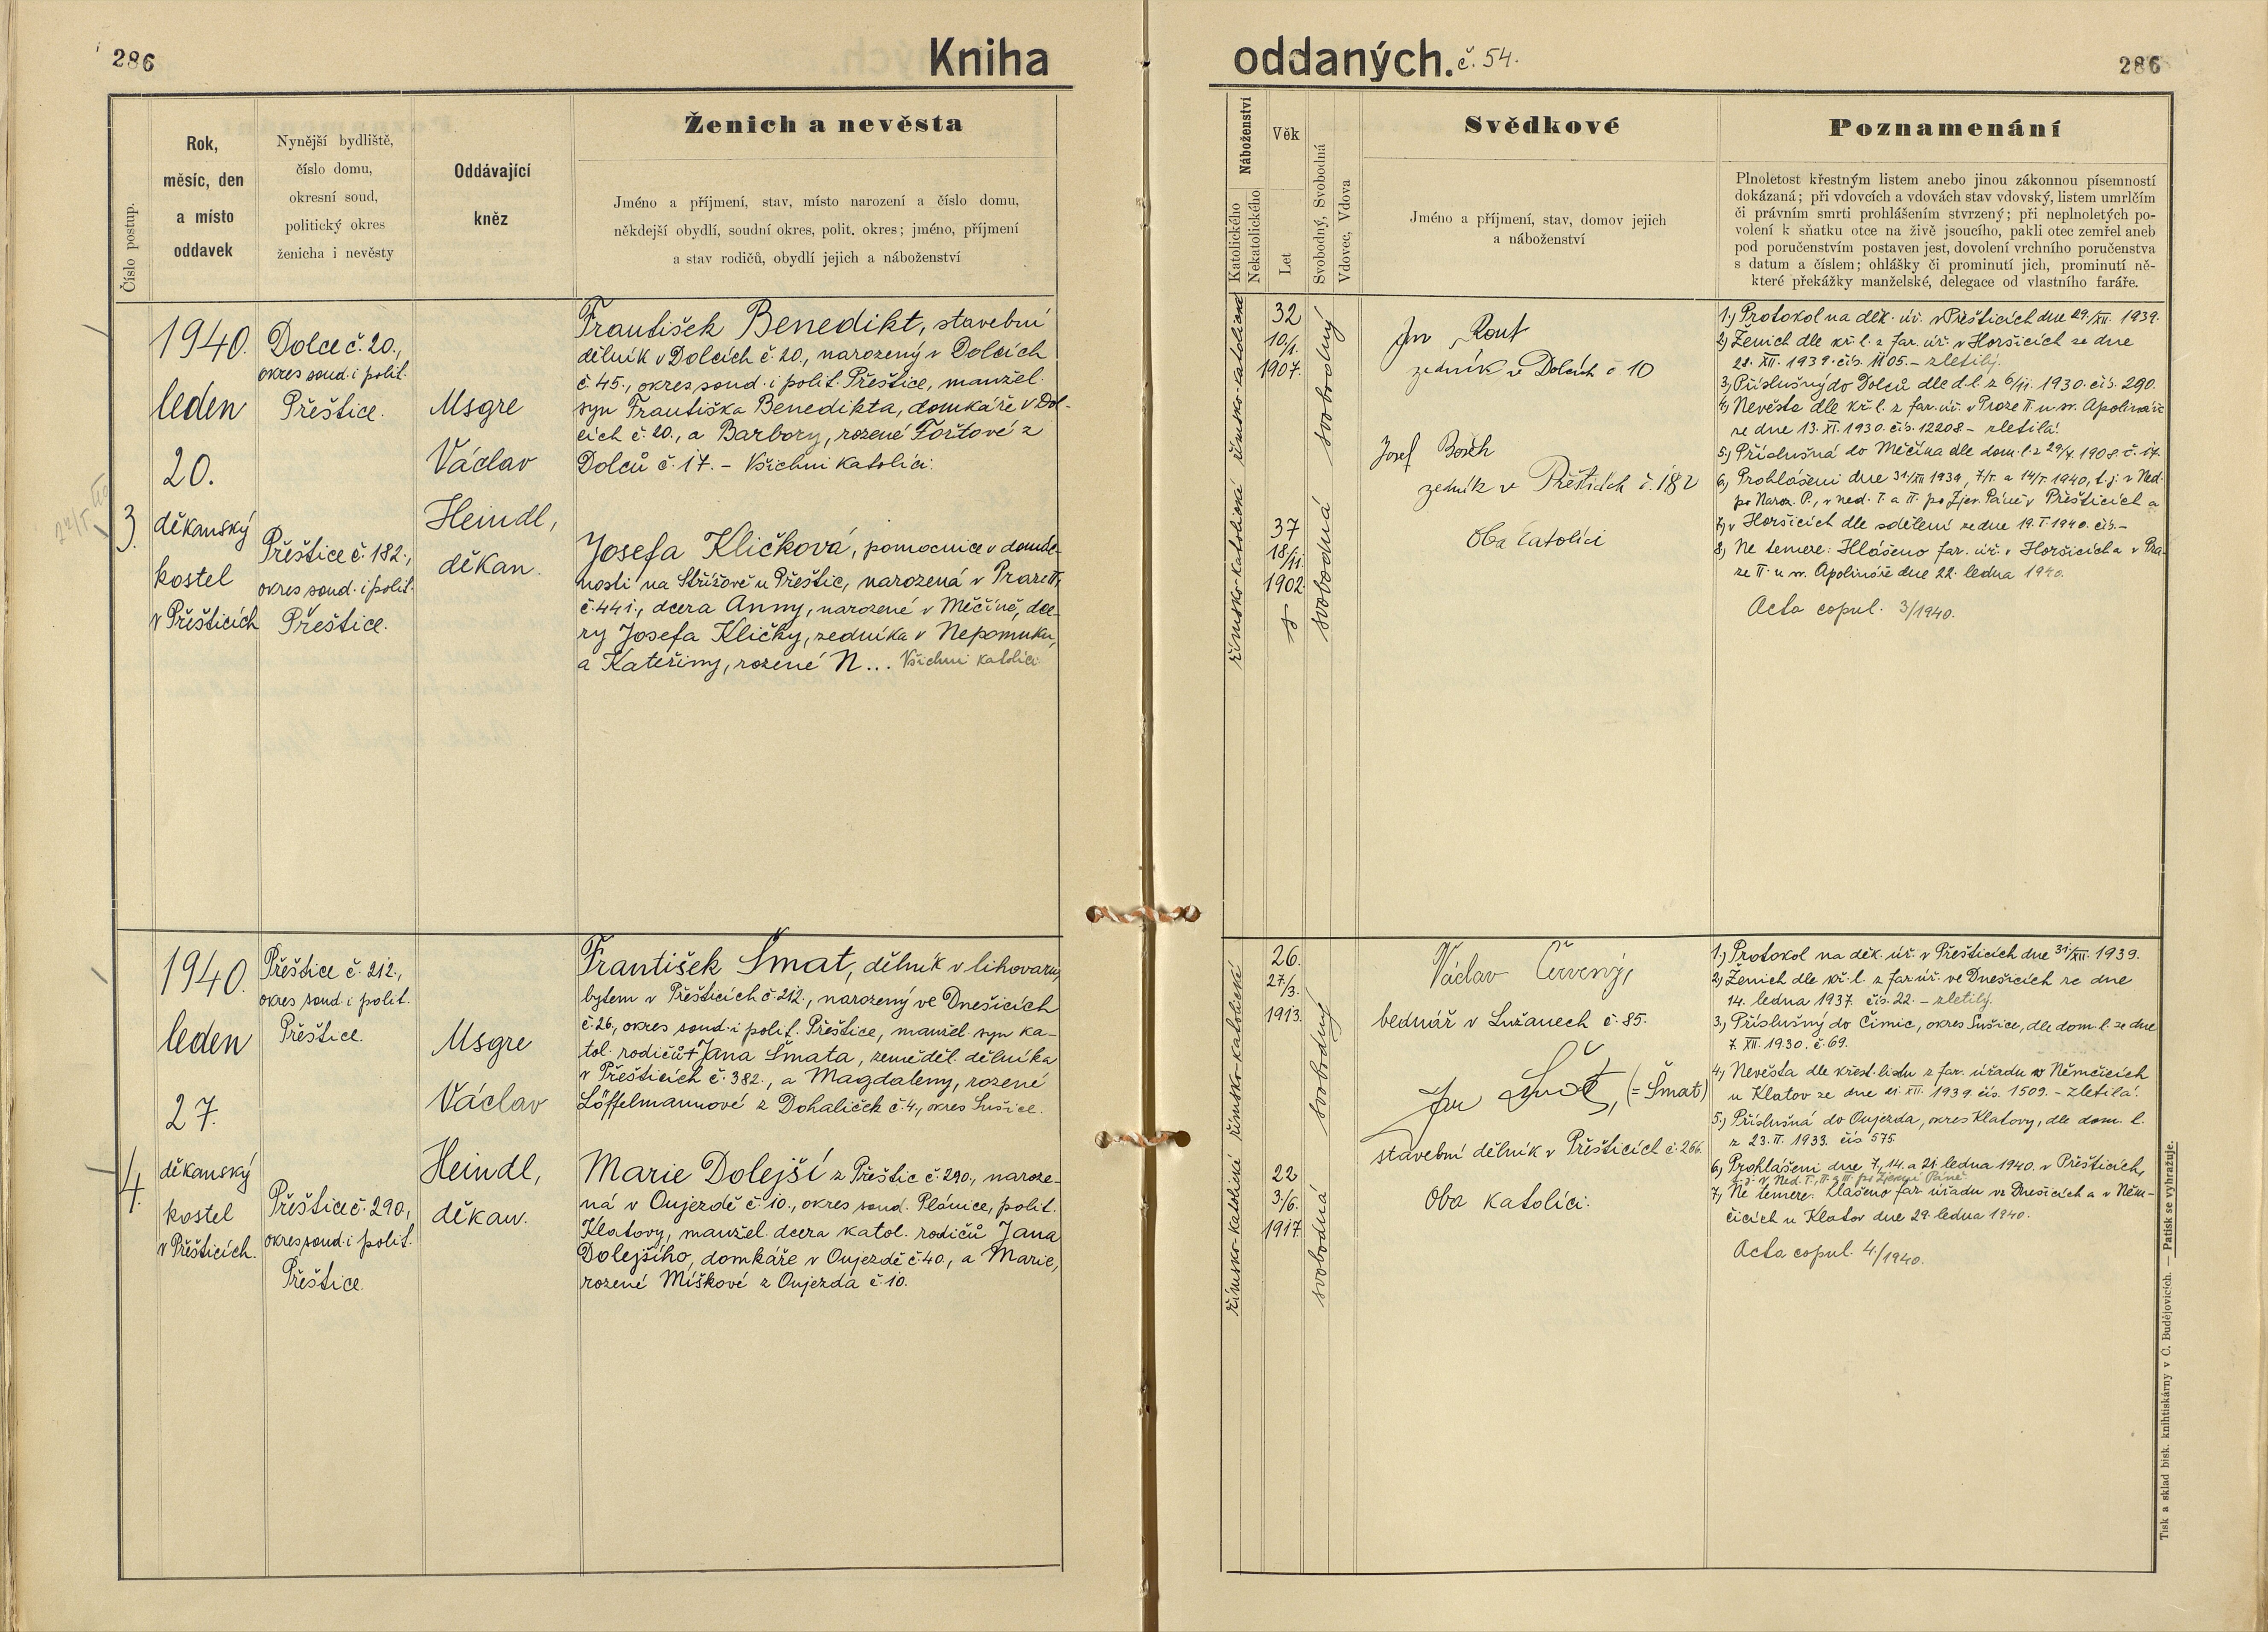 286
Kniha
oddaných. č. 54.
286
Číslo postup.
Rok,
měsíc, den
a místo
oddavek
Nynější bydliště,
číslo domu,
okresní soud,
politický okres
ženicha i nevěsty
Oddávající
kněz
Ženich a nevěsta
Jméno a příjmení, stav, místo narození a číslo domu,
někdejší obydlí, soudní okres, polit. okres; jméno, příjmení
a stav rodičů, obydlí jejich a náboženství
Náboženství
Katolického
Nekatolického
Věk
Let
Svobodný, Svobodná
Vdovec, Vdova
Svědkové
Jméno a příjmení, stav, domov jejich
a náboženství
Poznamenání
Plnoletost křestným listem anebo jinou zákonnou písemností
dokázaná; při vdovcích a vdovách stav vdovský, listem umrlčím
či právním smrti prohlášením stvrzený; při neplnoletých po-
volení k sňatku otce na živě jsoucího, pakli otec zemřel aneb
pod poručenstvím postaven jest, dovolení vrchního poručenstva
s datum a číslem; ohlášky či prominutí jich, prominutí ně-
které překážky manželské, delegace od vlastního faráře.
3.
1940.
leden
20.
děkanský
kostel
v Přešticích
Dolce č. 20.,
okres soud. i polit.
Přeštice.
Přeštice č. 182.,
okres soud. i polit.
Přeštice.
Msgre
Václav
Heindl,
děkan.
František Benedikt, stavební
dělník v Dolcích č. 20., narozený v Dolcích
č. 45., okres soud. i polit. Přeštice, manžel.
syn Františka Benedikta, domkáře v Dol-
cích č. 20., a Barbory, rozené Foštové z
Dolců č. 17. – Všichni katolíci.
Josefa Kličková, pomocnice v domác-
nosti na Střížově u Přeštic, narozená v Praze II.
č. 441., dcera Anny, narozené v Měčíně, dce-
ry Josefa Kličky, zedníka v Nepomuku,
a Kateřiny, rozené N... Všichni katolíci
římsko-katolické
římsko-katolické
32
10/1.
1907.
37
18/11.
1902
svobodný
svobodná
Jan Rout
zedník v Dolcích č 10
Josef
zedník v Přešticích č. 182
Oba katolíci
1.) Protokol na děk. úř. v Přešticích dne 29./XII. 1939.
2.) Ženich dle kř. l. z far. úř. v Horšicích ze dne
28. XII. 1939. čís. 1105. – zletilý.
3.) Příslušný do Dolců dle d. l. z 6/11. 1930. čís. 290.
4.) Nevěsta dle kř. l. z far. úř. v Praze II. u sv. Apolináře
ze dne 13. XI. 1930. čís. 12208 – zletilá.
5.) Příslušná do Měčína dle dom. l. z 29/X. 1908. č. 17.
6.) Prohlášeni dne 31/XII 1939, 7/I. a 14/I. 1940, t. j. v Ned.
po Naroz. P., v ned. I. a II. po Zjev. Páně v Přešticích a
7.) v Horšicích dle sdělení ze dne 19. I. 1940. čís. –
8.) Ne temere: Hlášeno far. úř. v Horšicích a v Pra-
ze II. u sv. Apolináře dne 22. ledna 1940.
Acta copul. 3/1940.
4.
1940.
leden
27.
děkanský
kostel
v Přešticích.
Přeštice č. 212.,
okres soud. i polit.
Přeštice.
Přeštice č. 290.,
okres soud. i polit.
Přeštice.
Msgre
Václav
Heindl,
děkan.
František Šmat, dělník v lihovaru,
bytem v Přešticích č. 212., narozený ve Dnešicích
č. 26., okres soud. i polit. Přeštice, manžel. syn ka-
tol. rodičů † Jana Šmata, zeměděl. dělníka
v Přešticích č. 382., a Magdaleny, rozené
Löffelmannové z Dohaliček č. 4., okres Sušice.
Marie Dolejší z Přeštic č. 290., naroze-
ná v Oujezdě č. 10., okres soud. Plánice, polit.
Klatovy, manžel. dcera katol. rodičů Jana
Dolejšího, domkáře v Oujezdě č. 40., a Marie,
rozené Míškové z Oujezda č. 10.
římsko-katolické
římsko-katolické
26.
27/3.
1913.
22
3/6.
1917.
svobodný
svobodná
Václav Červený,
bednář v Lužanech č. 85.
Jan Šmat, (= Šmat)
stavební dělník v Přešticích č. 266.
Oba katolíci.
1.) Protokol na děk. úř. v Přešticích dne 31./XII. 1939.
2.) Ženich dle kř. l. z far. úř. ve Dnešicích ze dne
14. ledna 1937. čís. 22. – zletilý.
3.) Příslušný do Čimic, okres Sušice, dle dom. l. ze dne
7. XII. 1930. č. 69.
4.) Nevěsta dle křest. listu z far. úřadu v Němčicích
u Klatov ze dne 21. XII. 1939. čís. 1509. – zletilá.
5.) Příslušná do Oujezda, okres Klatovy, dle dom. l.
z 23. II. 1933. čís 575.
6.) Prohlášeni dne 7., 14. a 21. ledna 1940. v Přešticích,
t. j. v Ned. I., II. a III. po Zjevení Páně.
7.) Ne temere: Hlášeno far. úřadu ve Dnešicích a v Něm-
čicích u Klatov dne 29. ledna 1940.
Acta copul. 4/1940.
Tisk a sklad bisk. knihtiskárny v Č. Budějovicích. — Patisk se vyhražuje.